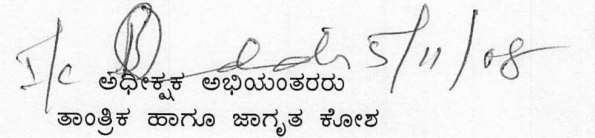 I/c 5/11/08
ಅಧೀಕ್ಷಕ ಅಭಿಯಂತರರು
ತಾಂತ್ರಿಕ ಹಾಗೂ ಜಾಗೃತ ಕೋಶ